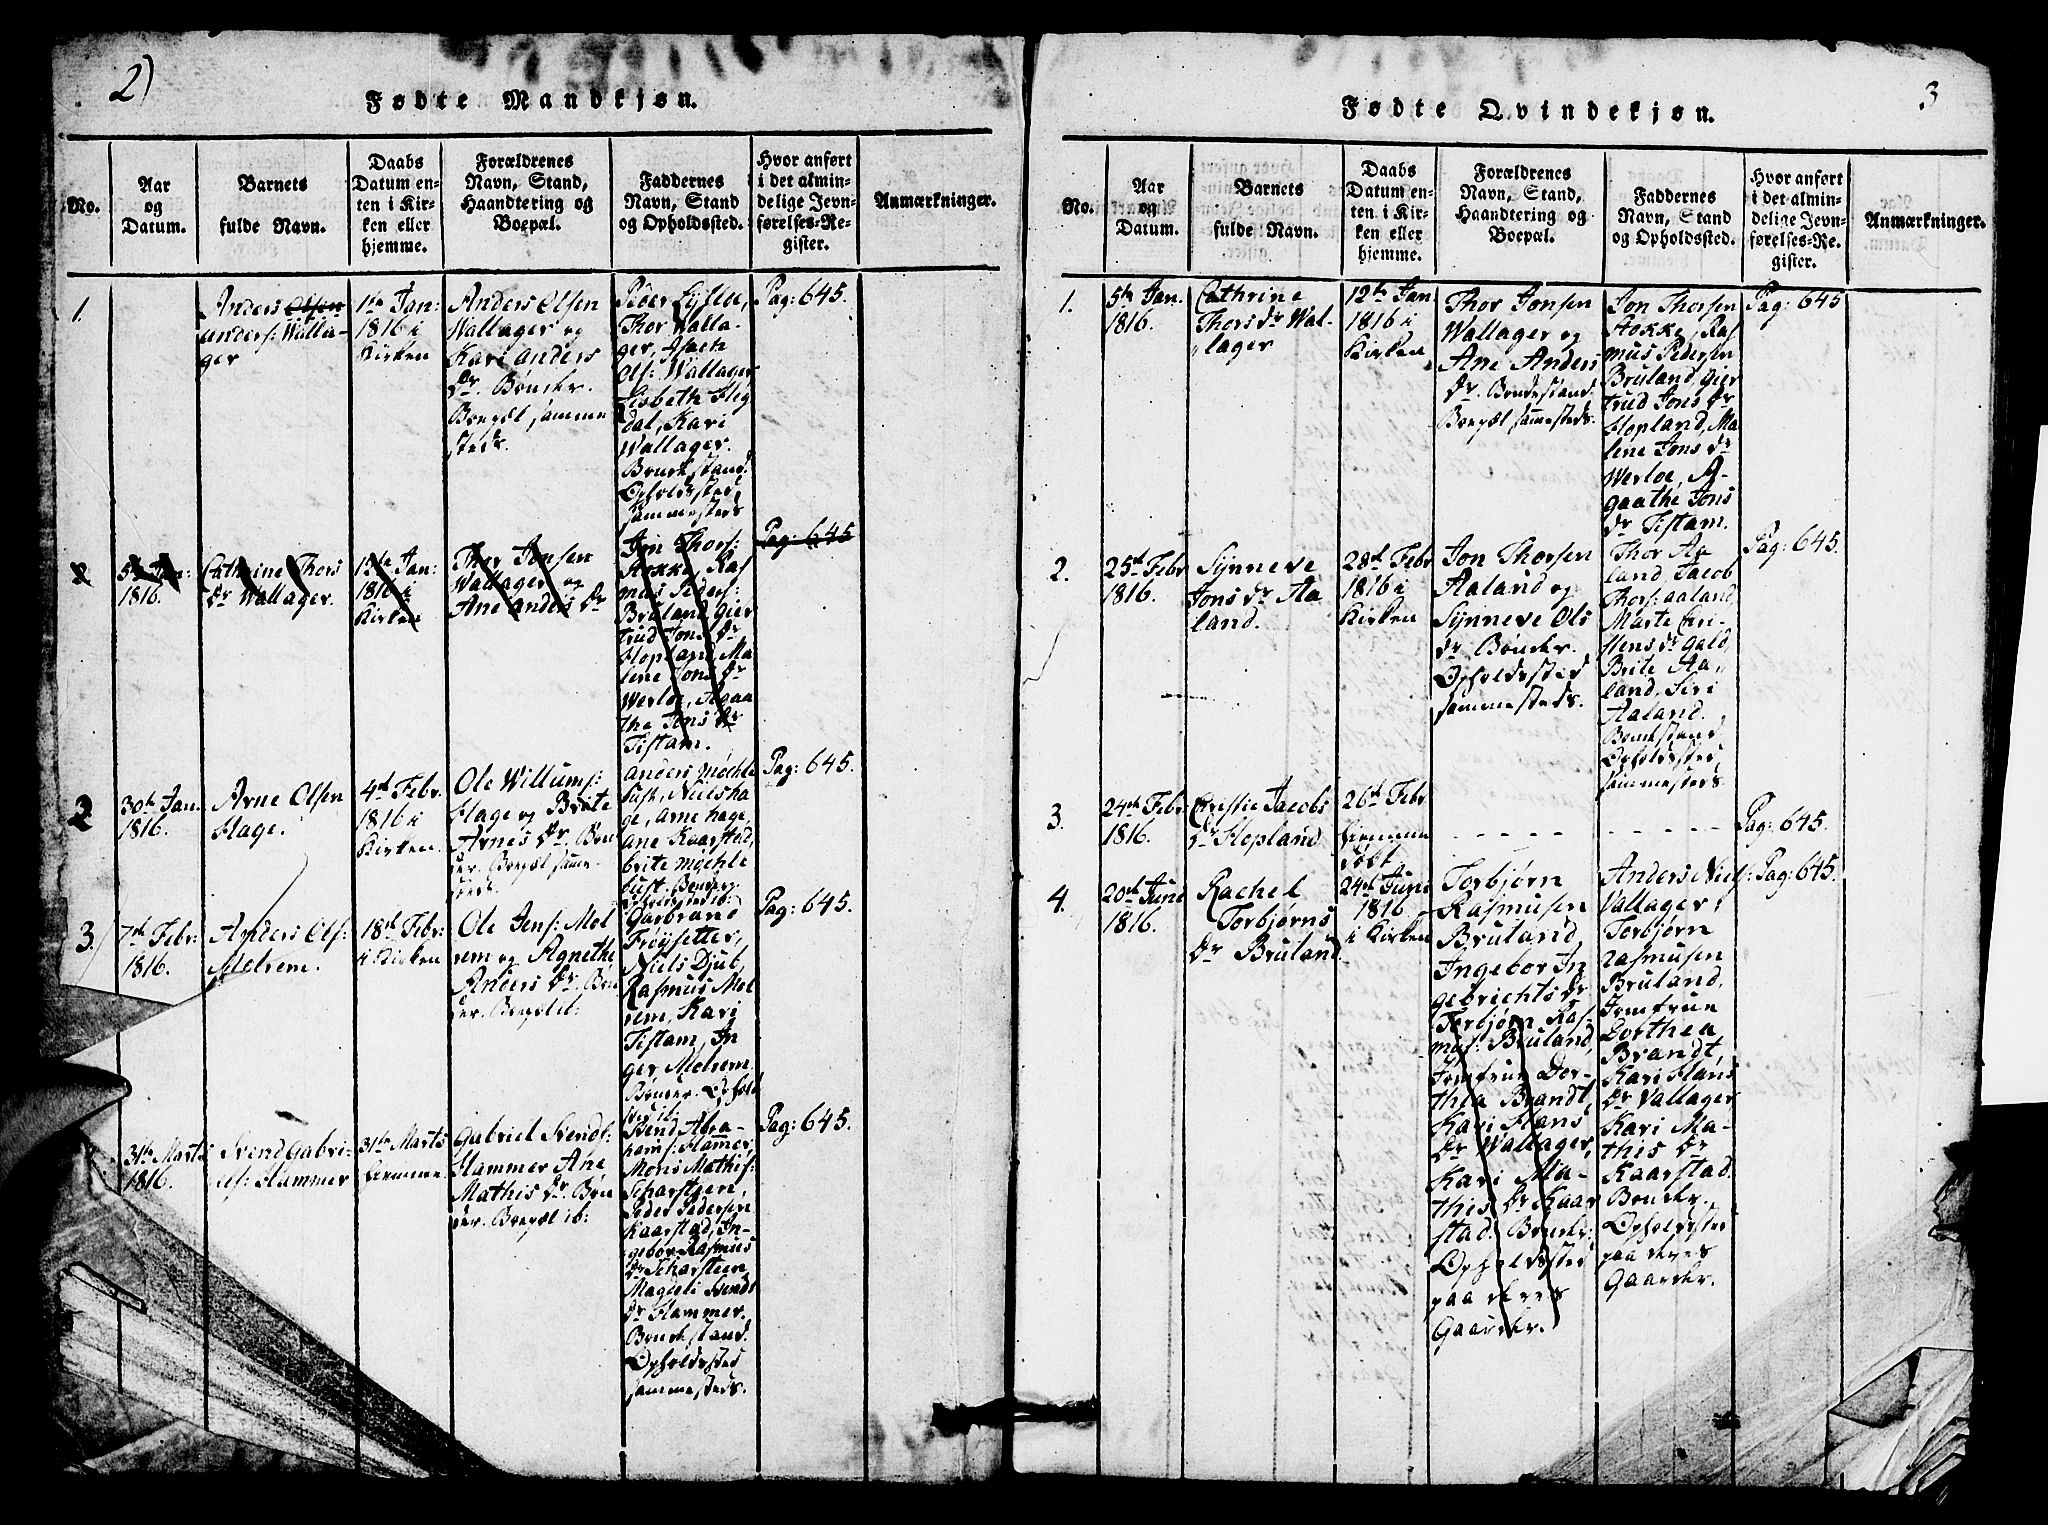 2)
Fødte Mandkjøn.
No.
Aar
og
Datum.
Barnets
fulde Navn.
Daabs
Datum en-
ten i Kir-
ken eller
hjemme.
Forældrenes
Navn, Stand,
Haandtering og
Boepæl.
Faddernes
Navn, Stand
og Opholdssted.
Hvor anført
i det almin-
delige Jevn-
førelses-Re-
gister.
Anmærkninger.
1.
Anders Olsen
Anders: Walla-
ger
1ste Jan:
1816 i
Kirken
Anders Olsen
Wallager og
Kari Anders
Dr. Bønder.
Boepæl samme
steds.
Peder
Thor Walla-
ger,
Ols: Wallager
Lisbeth Heg
dal, Kari
Wallager.
Bondestand.
Opholdssted
sammesteds
Pag: 645.
2
5te Jan:
1816.
Cathrine Thors
Dr Wallager.
12te Jan:
1816 i
Kirken
Thor Jonsen
Wallager og
Ane Anders Dr
Jon Thors:
Hokke, Ras
mus Peders:
Bruland, Gier
trud Jons Dr
Hopland, Ma
lene Jons Dr
Werloe, Agaa
the Jons Dr
Tistam.
Pag: 645
2
30te Jan.
1816.
Arne Olsen
Hage.
4de Febr.
1816 i
Kirken.
Ole Willums:
Hage og Brite
Arnes Dr. Bøn
der. Boepæl samme
steds.
Anders Møchle
bust, Niels Ha
ge, Arne Hage,
Ane Kaarstad,
Brite Møchle
bust. Bønder
Opholdssted ib:
Pag: 645.
3.
7de Febr:
1816.
Anders Ols:
Melrem.
18de Febr:
i Kirken
Ole Jens: Mel
rem og Agnethe
Anders Dr. Bøn
der. Boepæl ib:
Garbrand
Frøysetter,
Niels Djub,
Rasmus Mel
rem, Kari
Tistam, In
ger Melrem.
Bønder. Ophold
sted ib:
Pag: 645.
31te Marts
1816.
Svend Gabri-
els: Hammer
31te Marts
hiemme.
Gabriel Svends:
Hammer Ane
Mathis Dr. Bøn
der. Boepæl ib:
Bend Abra-
hams: Hammer,
Mons Mathis:
Scharsteen,
Peder Pedersen
Kaarstad, In-
gebor Rasmus
Dr Scharsteen
Magteli Svends
Dr Hammer.
Bondestand.
Opholdssted
sammesteds.
Pag: 645.
3
Fødte Qvindekjøn.
No.
Aar
og
Datum.
Barnets
fulde Navn.
Daabs
Datum en-
ten i Kir-
ken eller
hjemme.
Forældrenes
Navn, Stand,
Haandtering og
Boepæl.
Faddernes
Navn, Stand
og Opholdssted.
Hvor anført
i det almin-
delige Jevn-
førelses-Re-
gister.
Anmærkninger.
1.
5te Jan.
1816.
Cathrine
Thors Dr Wal-
lager
12te Jan
1816 i
Kirken
Thor Jonsen
Wallager og
Ane Anders
Dr. Bondestand.
Boepæl sammesteds.
Jon Thorsen
Hokke, Ras
mus Pedersen
Bruland, Gier
trud Jons Dr
Hopland, Ma
lene Jons Dr
Werloe, A-
gaathe Jons
Dr Tistam.
Pag: 645
2.
25de Febr
1816.
Synneve
Jons Dr Aa
land.
28de Febr
1816 i
Kirken
Jon Thorsen
Aaland og
Synneve Ols
Dr. Bønder.
Opholdssted
sammesteds.
Thor Aa
land, Jacob
Thors: Aaland,
Marte Chri-
stens Dr Gald,
Brite Aa-
land, Siri
Aaland.
Bondestand
Opholdssted
sammesteds.
Pag: 645.
3.
24de Febr
1816.
Chrestie Jacobs
Dr Hopland
26de Febr
hiemme
døbt
Pag: 645.
4.
20de Juni
1816.
Rachel
Torbjørns
Dr Bruland
24de Juni
1816
i Kirken
Torbjørn
Rasmusen
Bruland
Ingebor In
gebrichts Dr
Torbjørn Ras
mus: Bruland,
Jomfrue Dor-
thea Brandt,
Kari Hans
Dr Wallager,
Kari Ma-
this Dr Kaar
stad. Bønder:
Opholdssted
paa deres
Gaarder.
Anders Niels:
Vallager,
Torbjørn
Rasmusen
Bruland,
Jomfrue
Dorthea
Brandt,
Kari Hans
Dr Vallager
Kari Ma-
this Dr
Kaarstad.
Bønder.
Opholdssted
paa deres
Gaarder.
Pag: 645.